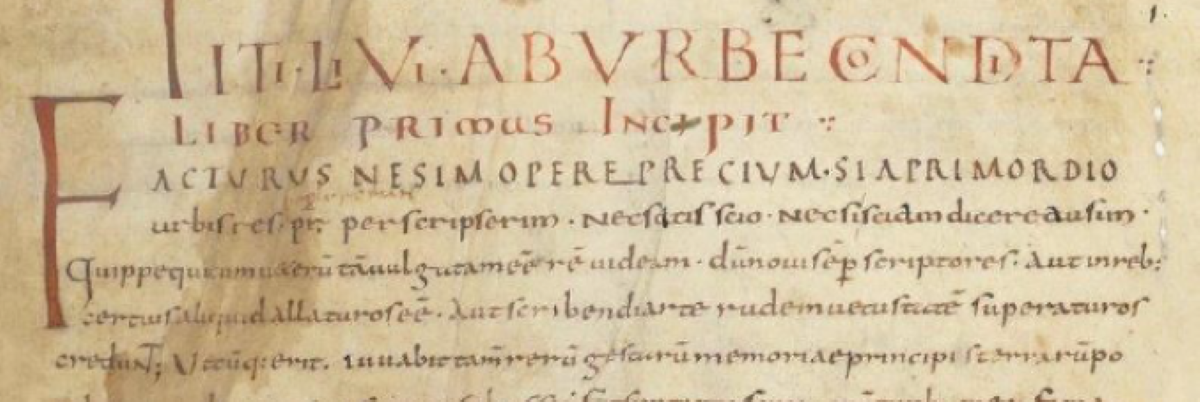 TITI·LIVI·AB VRBE CONDITA
LIBER PRIMUS INCIPIT
FACTURUS NE SIM OPERE PRECIUM·SI A PRIMORDIO
urbis res pr perscripserim · nec satis scio · nec si sciam dicere ausim ·
Quippe qui cum ueterē tū uulgatam eē rē uideam · dū noui sēp scriptores · Aut in reb;
certius aliquid allaturos eē · Aut scribendi arte rudem uetustatē superaturos
credunt; Utcūq; erit · iuuabit tam̄ rerū gestarū memoriae principis terrarū po